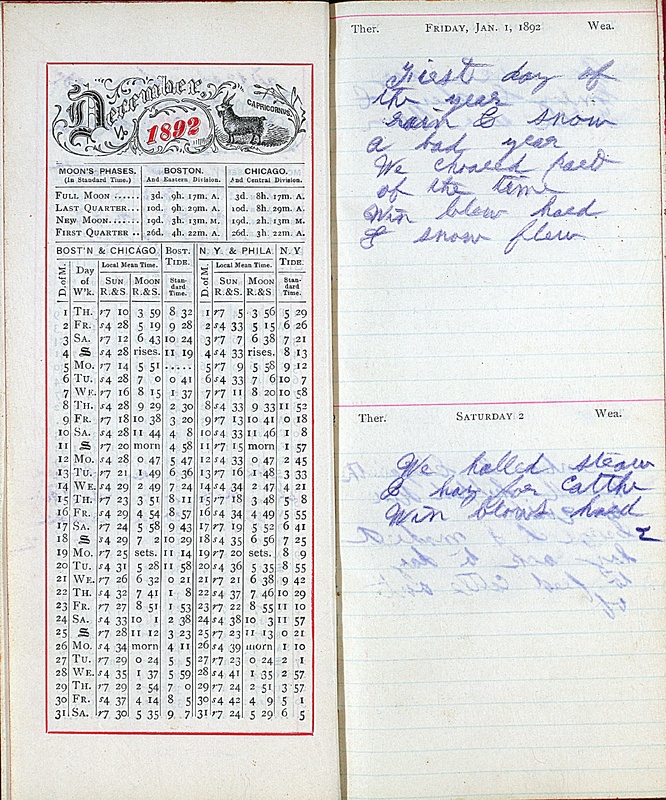 December,
1892
CAPRICORNUS.
MOON'S PHASES. BOSTON. CHICAGO.
(In Standard Time.) And Eastern Division. And Central Division.
FULL MOON ...... 3d. 9h. 17m. A. 3d. 8h. 17m. A.
LAST QUARTER... 10d. 9h. 29m. A. 10d. 8h. 29m. A.
NEW MOON....... 19d. 3h. 13m. M. 19d. 2h. 13m. M.
FIRST QUARTER .. 26d. 4h. 22m. A. 26d. 3h. 22m. A.
BOST'N & CHICAGO. BOST. TIDE. N. Y. & PHILA. N. Y. TIDE.
D. of M. Day of W'k. Local Mean Time. SUN R.&S. MOON R.&S. Standard Time. D. of M. Local Mean Time. SUN R.&S. MOON R.&S. Standard Time.
1 TH. r7 10 3 59 8 32 1 r7 5 3 56 5 29
2 FR. s4 28 5 19 9 28 2 s4 33 5 15 6 26
3 SA. r7 12 6 43 10 24 3 r7 7 6 38 7 21
4 S s4 28 rises. 11 19 4 s4 33 rises. 8 13
5 MO. r7 14 5 51 ..... 5 r7 9 5 58 9 12
6 TU. s4 28 7 0 0 41 6 s4 33 7 6 10 7
7 WE. r7 16 8 15 1 37 7 r7 11 8 20 10 58
8 TH. s4 28 9 29 2 30 8 s4 33 9 33 11 52
9 FR. r7 18 10 38 3 20 9 r7 13 10 41 0 18
10 SA. s4 28 11 44 4 8 10 s4 33 11 46 1 8
11 S r7 20 morn 4 58 11 r7 15 morn 1 57
12 MO. s4 28 0 47 5 47 12 s4 33 0 47 2 45
13 TU. r7 21 1 49 6 36 13 r7 16 1 48 3 33
14 WE. s4 29 2 49 7 24 14 s4 34 2 47 4 21
15 TH. r7 23 3 51 8 11 15 r7 18 3 48 5 8
16 FR. s4 29 4 54 8 57 16 s4 34 4 49 5 55
17 SA. r7 24 5 58 9 43 17 r7 19 5 52 6 41
18 S s4 29 7 2 10 29 18 s4 35 6 56 7 25
19 MO. r7 25 sets. 11 14 19 r7 20 sets. 8 9
20 TU. s4 31 5 28 11 58 20 s4 36 5 35 8 55
21 WE. r7 26 6 32 0 21 21 r7 21 6 38 9 42
22 TH. s4 32 7 41 1 8 22 s4 37 7 46 10 29
23 FR. r7 27 8 51 1 53 23 r7 22 8 55 11 10
24 SA. s4 33 10 1 2 38 24 s4 38 10 3 11 57
25 S r7 28 11 12 3 23 25 r7 23 11 13 0 21
26 MO. s4 34 morn 4 11 26 s4 39 morn 1 10
27 TU. r7 29 0 24 5 5 27 r7 23 0 24 2 1
28 WE. s4 35 1 37 5 59 28 s4 41 1 35 2 57
29 TH. r7 29 2 54 7 0 29 r7 24 2 51 3 57
30 FR. s4 37 4 14 8 5 30 s4 42 4 9 5 1
31 SA. r7 30 5 35 9 7 31 r7 24 5 29 6 5
Ther. FRIDAY, JAN. 1, 1892 Wea.
Fiest day of
the year
rarn & snow
a bad year
We
of the time
Win blew haed
& snow flew
Ther. SATURDAY 2 Wea.
We halled steaw
& hay for Catthe
Win blows haed